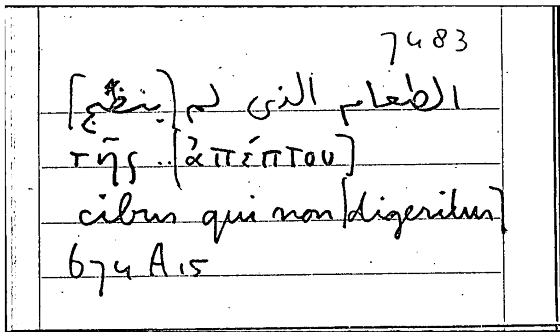 7483
الطعام الذى لم [ينضج]
τῆς .. [ἀπέπτου]
cibus qui non [digeritur]
674 A 15